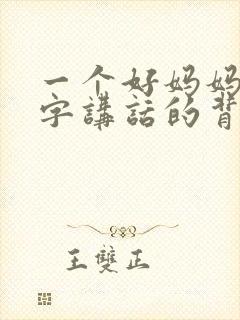 一个好妈妈
字講話的背
王雙正